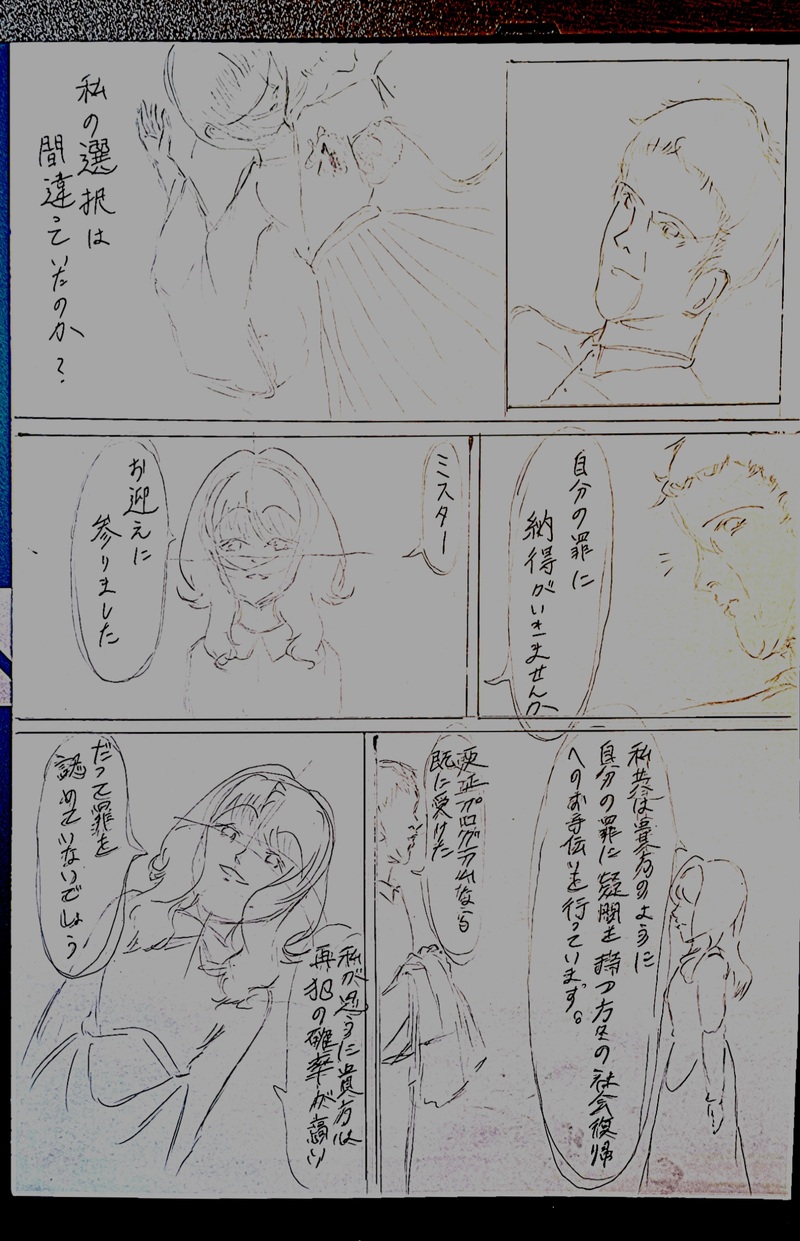 私の選択は
間違っていたのか?
自分の罪に
納得がいきませんか
ミスター
お迎えに
参りました
私共は貴方のように
自分の罪に疑問を持つ方々の社会復帰
へのお手伝いを行っています。
更正プログラムなら
既に受けた
私が思うに貴方は
再犯の確率が高い
だって罪を
認めていないでしょう